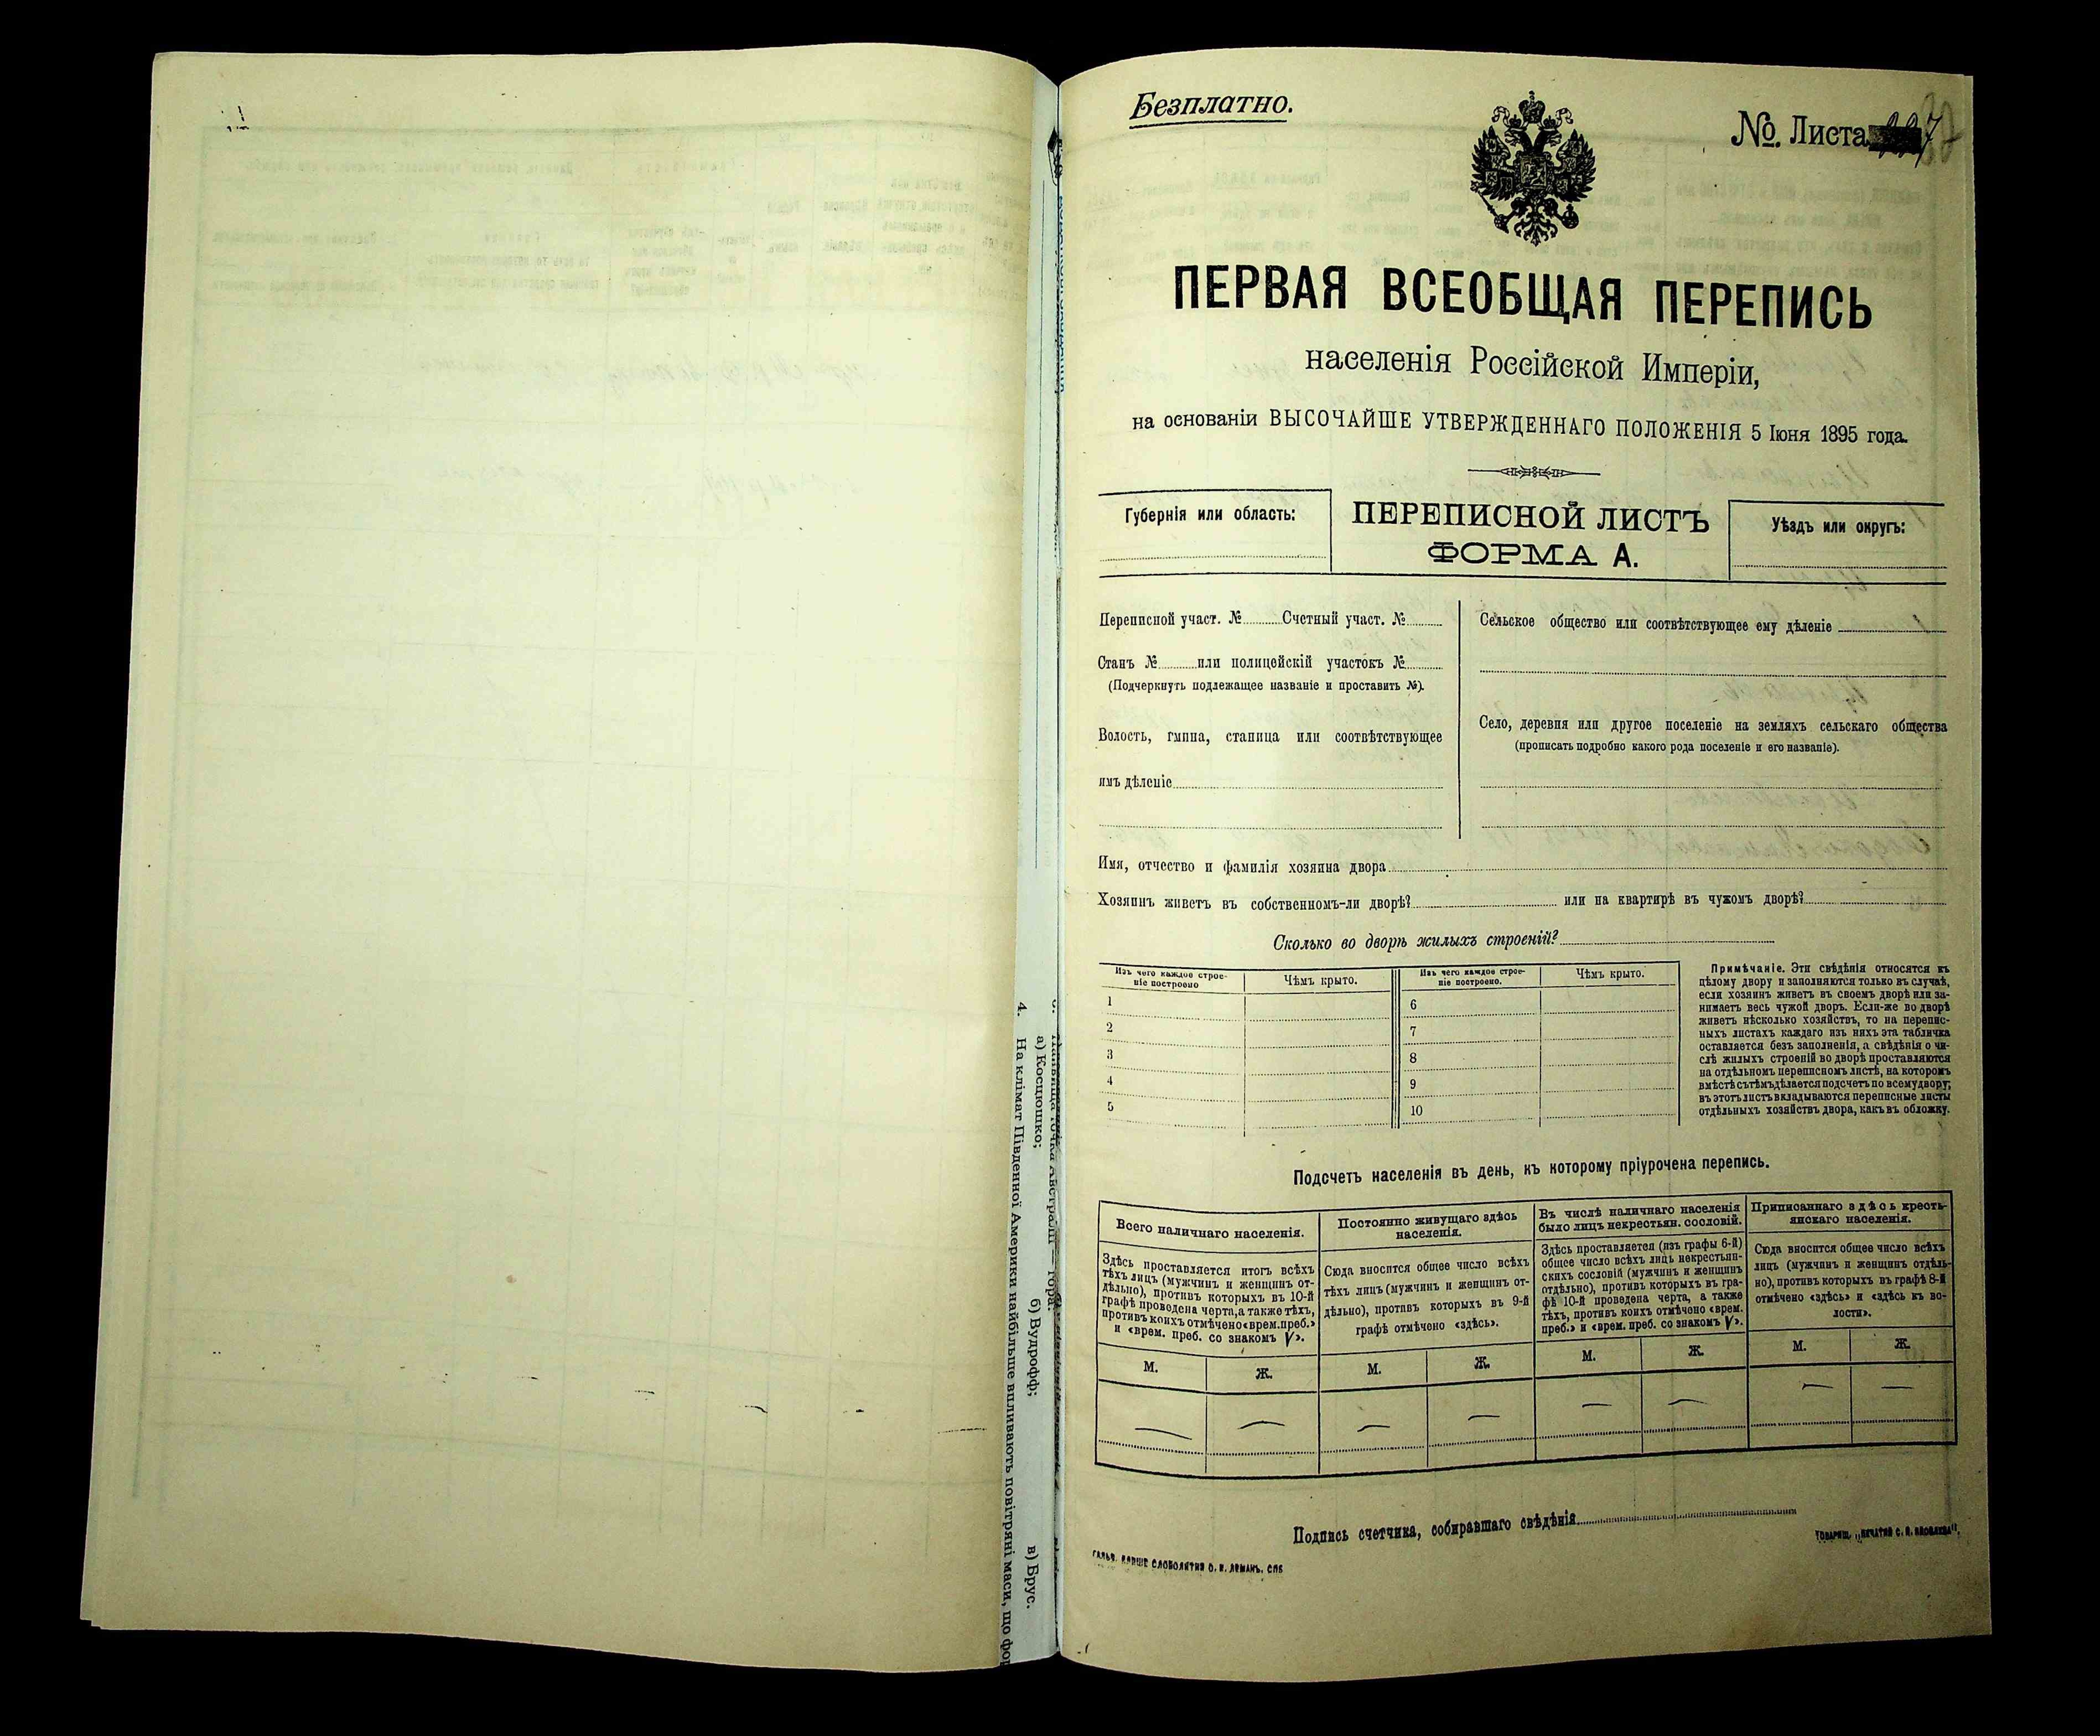 Безплатно.
№. Листа
ПЕРВАЯ ВСЕОБЩАЯ ПЕРЕПИСЬ
населенія Россійской Имперіи,
на основаніи ВЫСОЧАЙШЕ УТВЕРЖДЕННАГО ПОЛОЖЕНІЯ 5 Іюня 1895 года.
Губернія или область:
ПЕРЕПИСНОЙ ЛИСТЪ
ФОРМА А.
Уѣздъ или округъ:
Переписной участ. № Счетный участ. №
Станъ № или полицейскій участокъ №
(Подчеркнуть подлежащее названіе и проставить №).
Волость, гмина, станица или соотвѣтствующее
имъ дѣленіе
Сельское общество или соотвѣтствующее ему дѣленіе
Село, деревня или другое поселеніе на земляхъ сельскаго общества
(прописать подробно какого рода поселеніе и его названіе).
Имя, отчество и фамилія хозяина двора
Хозяинъ живетъ въ собственномъ-ли дворѣ? или на квартирѣ въ чужомъ дворѣ?
Сколько во дворѣ жилыхъ строеній?
Изъ чего каждое строе-
ніе построено
Чѣмъ крыто.
1
2
3
4
5
Изъ чего каждое строе-
ніе построено.
Чѣмъ крыто.
6
7
8
9
10
Примѣчаніе. Эти свѣдѣнія относятся къ
цѣлому двору и заполняются только въ случаѣ,
если хозяинъ живетъ въ своемъ дворѣ или за-
нимаетъ весь чужой дворъ. Если-же во дворѣ
живетъ нѣсколько хозяйствъ, то на перепис-
ныхъ листахъ каждаго изъ нихъ эта табличка
оставляется безъ заполненія, а свѣдѣнія о чи-
слѣ жилыхъ строеній во дворѣ проставляются
на отдѣльномъ переписномъ листѣ, на которомъ
вмѣстѣ съ тѣмъ дѣлается подсчетъ по всему двору;
въ этотъ листъ вкладываются переписные листы
отдѣльныхъ хозяйствъ двора, какъ въ обложку.
Подсчетъ населенія въ день, къ которому пріурочена перепись.
Всего наличнаго населенія.
Здѣсь проставляется итогъ всѣхъ
тѣхъ лицъ (мужчинъ и женщинъ от-
дѣльно), противъ которыхъ въ 10-й
графѣ проведена черта, а также тѣхъ,
противъ коихъ отмѣчено «врем. преб.»
и «врем. преб. со знакомъ V».
М. Ж.
Постоянно живущаго здѣсь
населенія.
Сюда вносится общее число всѣхъ
тѣхъ лицъ (мужчинъ и женщинъ от-
дѣльно), противъ которыхъ въ 9-й
графѣ отмѣчено «здѣсь».
М. Ж.
Въ числѣ наличнаго населенія
было лицъ некрестьян. сословій.
Здѣсь проставляется (изъ графы 6-й)
общее число всѣхъ лицъ некрестьян-
скихъ сословій (мужчинъ и женщинъ
отдѣльно), противъ которыхъ въ гра-
фѣ 10-й проведена черта, а также
тѣхъ, противъ коихъ отмѣчено «врем.
преб.» и «врем. преб. со знакомъ V».
М. Ж.
Приписаннаго здѣсь кресть-
янскаго населенія.
Сюда вносится общее число всѣхъ
лицъ (мужчинъ и женщинъ отдѣль-
но), противъ которыхъ въ графѣ 8-й
отмѣчено «здѣсь» и «здѣсь къ во-
лости».
М. Ж.
Подпись счетчика, собиравшаго свѣдѣнія
4. На клімат Південної Америки найбільше впливають повітряні маси, що
а) Косцюшко; б) Вудрофф; в) Брус.